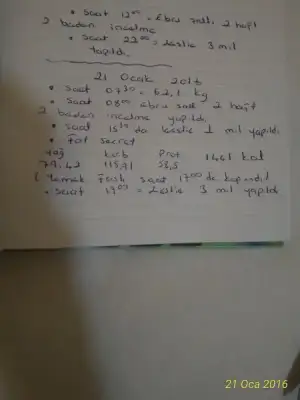 • saat 12⁰⁰ = Ebru 2 hafif
2 beden incelme
• saat 22⁰⁰ = Leslie 3 mil
yapıldı.
21 Ocak 2016
• saat 07³⁰ = 62,1 kg
• saat 08⁰⁰ ebru 2 hafif
2 beden incelme yapıldı.
• saat da leslie 1 mil yapıldı
• Fat secret
yağ karb Prot 1461 kal
79,42 115,71 53,5
( Yemek saat 17⁰⁰ da kapandı!
• saat 19⁰⁰ = Leslie 3 mil yapıldı
21 Oca 2016